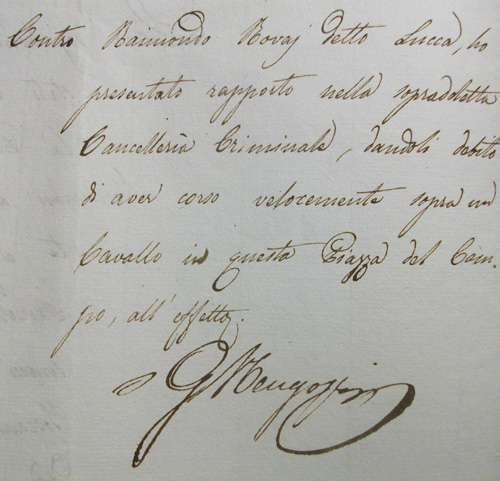 Contro Raimondo Rovaj detto Lucca, ho
presentato rapporto nella spradetta
Cancelleria Criminale, dandoli debito
di aver corso velocemente sopra un
Cavallo in questa Piazza del Cam-
po, all' effetto.